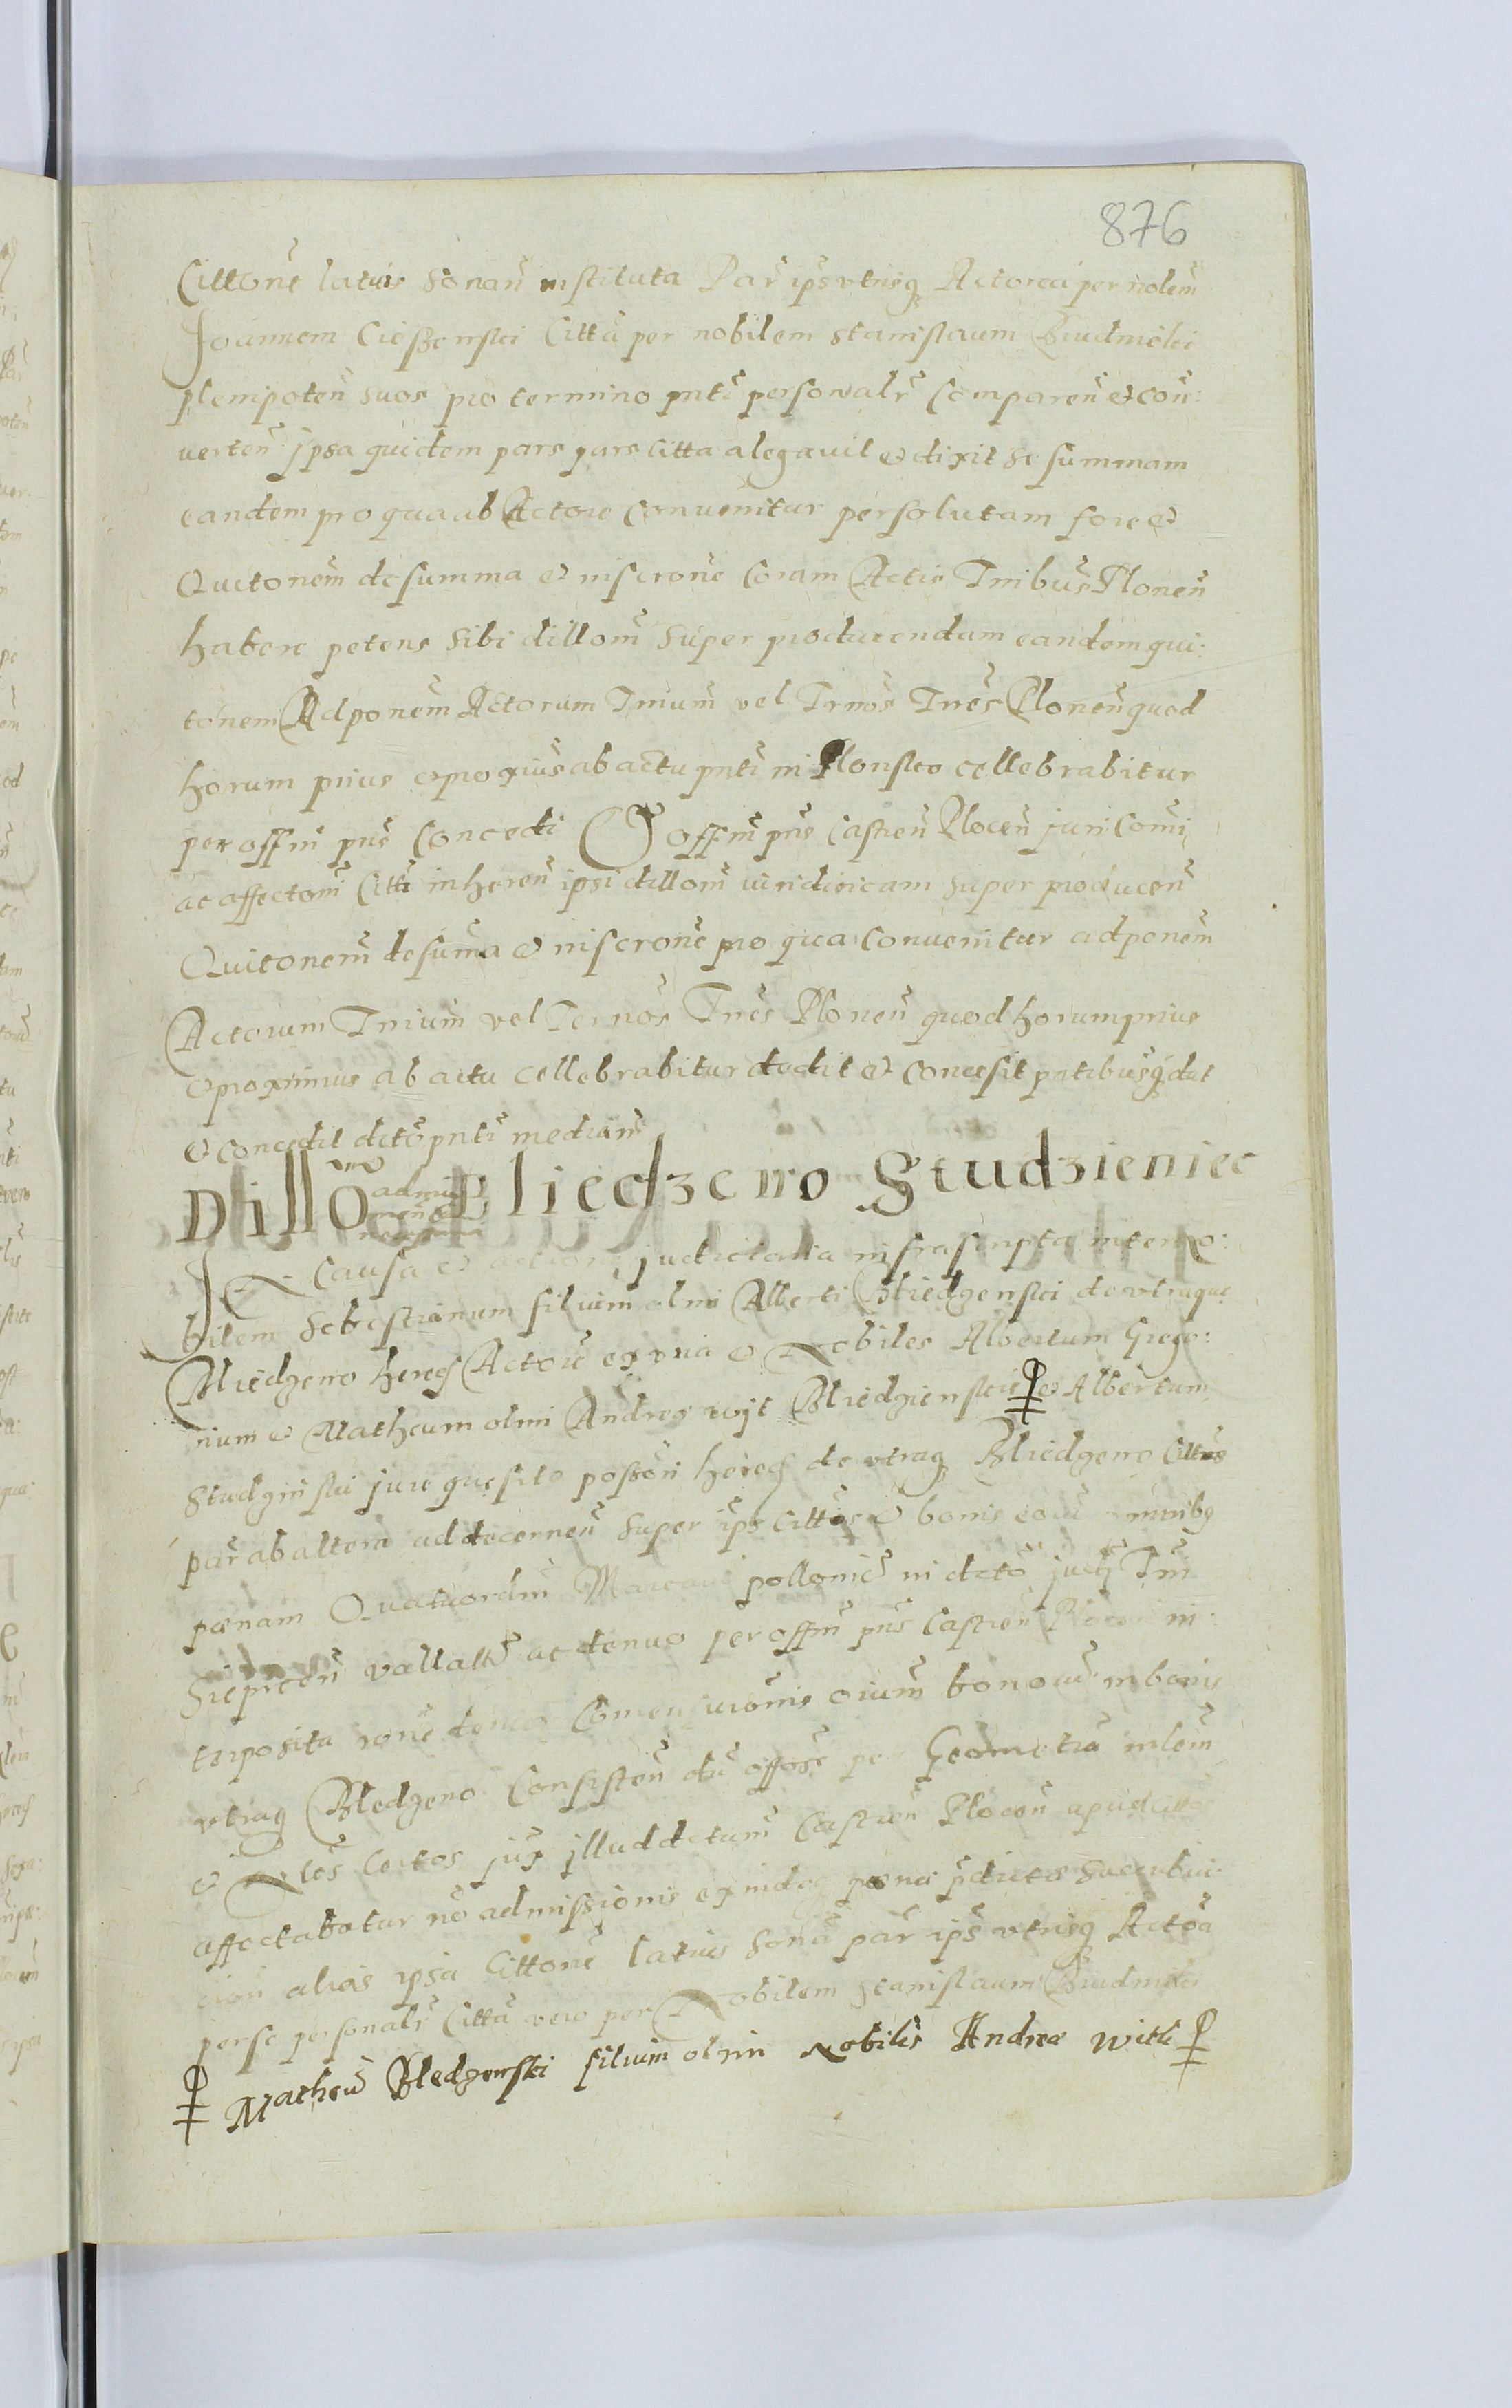 876
Cittone latius sonan instituta Par ips utrisq Actorea per nolem
Joannem Cieszenski Citta per nobilem Stanislaum Brudnicki
plenipoten suos pro termino pnti personalr Comparen et con:
verten ipsa quidem pars pars Citta alegavit et dixit se summam
eandem pro qua ab Actore Convenitur persolutam fore et
Quitonem de summa et inscrone Coram Actis Tribus Plonen
habere petens sibi dillom super producendam eandem qui:
tonem Ad ponem Actorum Trium vel Trnos Tres Plonen quod
horum prius et proxius ab actu pnti in Plonsko cellebrabitur
per offm pns Concedi Et offm pns Castren Plocen juri Comi
ac affectom Citti inheren ipsi dillom iuridicam super producen
Quitonem de suma et inscrone pro qua Convenitur ad ponem
Actorum Trium vel Ternos Tres Plonen quod horum prius
et proximus ab actu cellebrabitur dedit et concesit pntibusq dat
et concedit deto pnti median
Dillo Bliedzewo Studzieniec
admis
In Causa et actione judiciaria infrascripta inter no:
bilem Sebestianum filium olmi Alberti Bliedzenski de utraque
Bliedzewo hered Actore ex una et Nobiles Albertum Grego:
rium et Matheum olmi Andreę wyt Bliedzienskie et Albertum
Studzinski jure quesito posson hered de utraq Bliedzewo Cittos
par ab altera ad decernen super ips Cittos et bonis eoru omnibq
pœnam Quatuordm Marcaru pollonic in deto judi Trri
Siepricen vallatt ac denuo per offm pns Castren Plocen in:
terposita rone Comensuronis oium bonoru in bonis
utraq Bledzewo Consisten du offose per Geometra inlem
et Nles Certos jux illud detum Castren Plocen apud Cittos
affectabatur no admissionis exinde pœna pdicta succubui:
cion alias ipsa Cittone latius sona par ips utrisq Actoa
per se personalr Citta vero per Nobilem Stanislaum Brudnicki
Matheu Bledzenski filium olim Nobilis Andreæ With